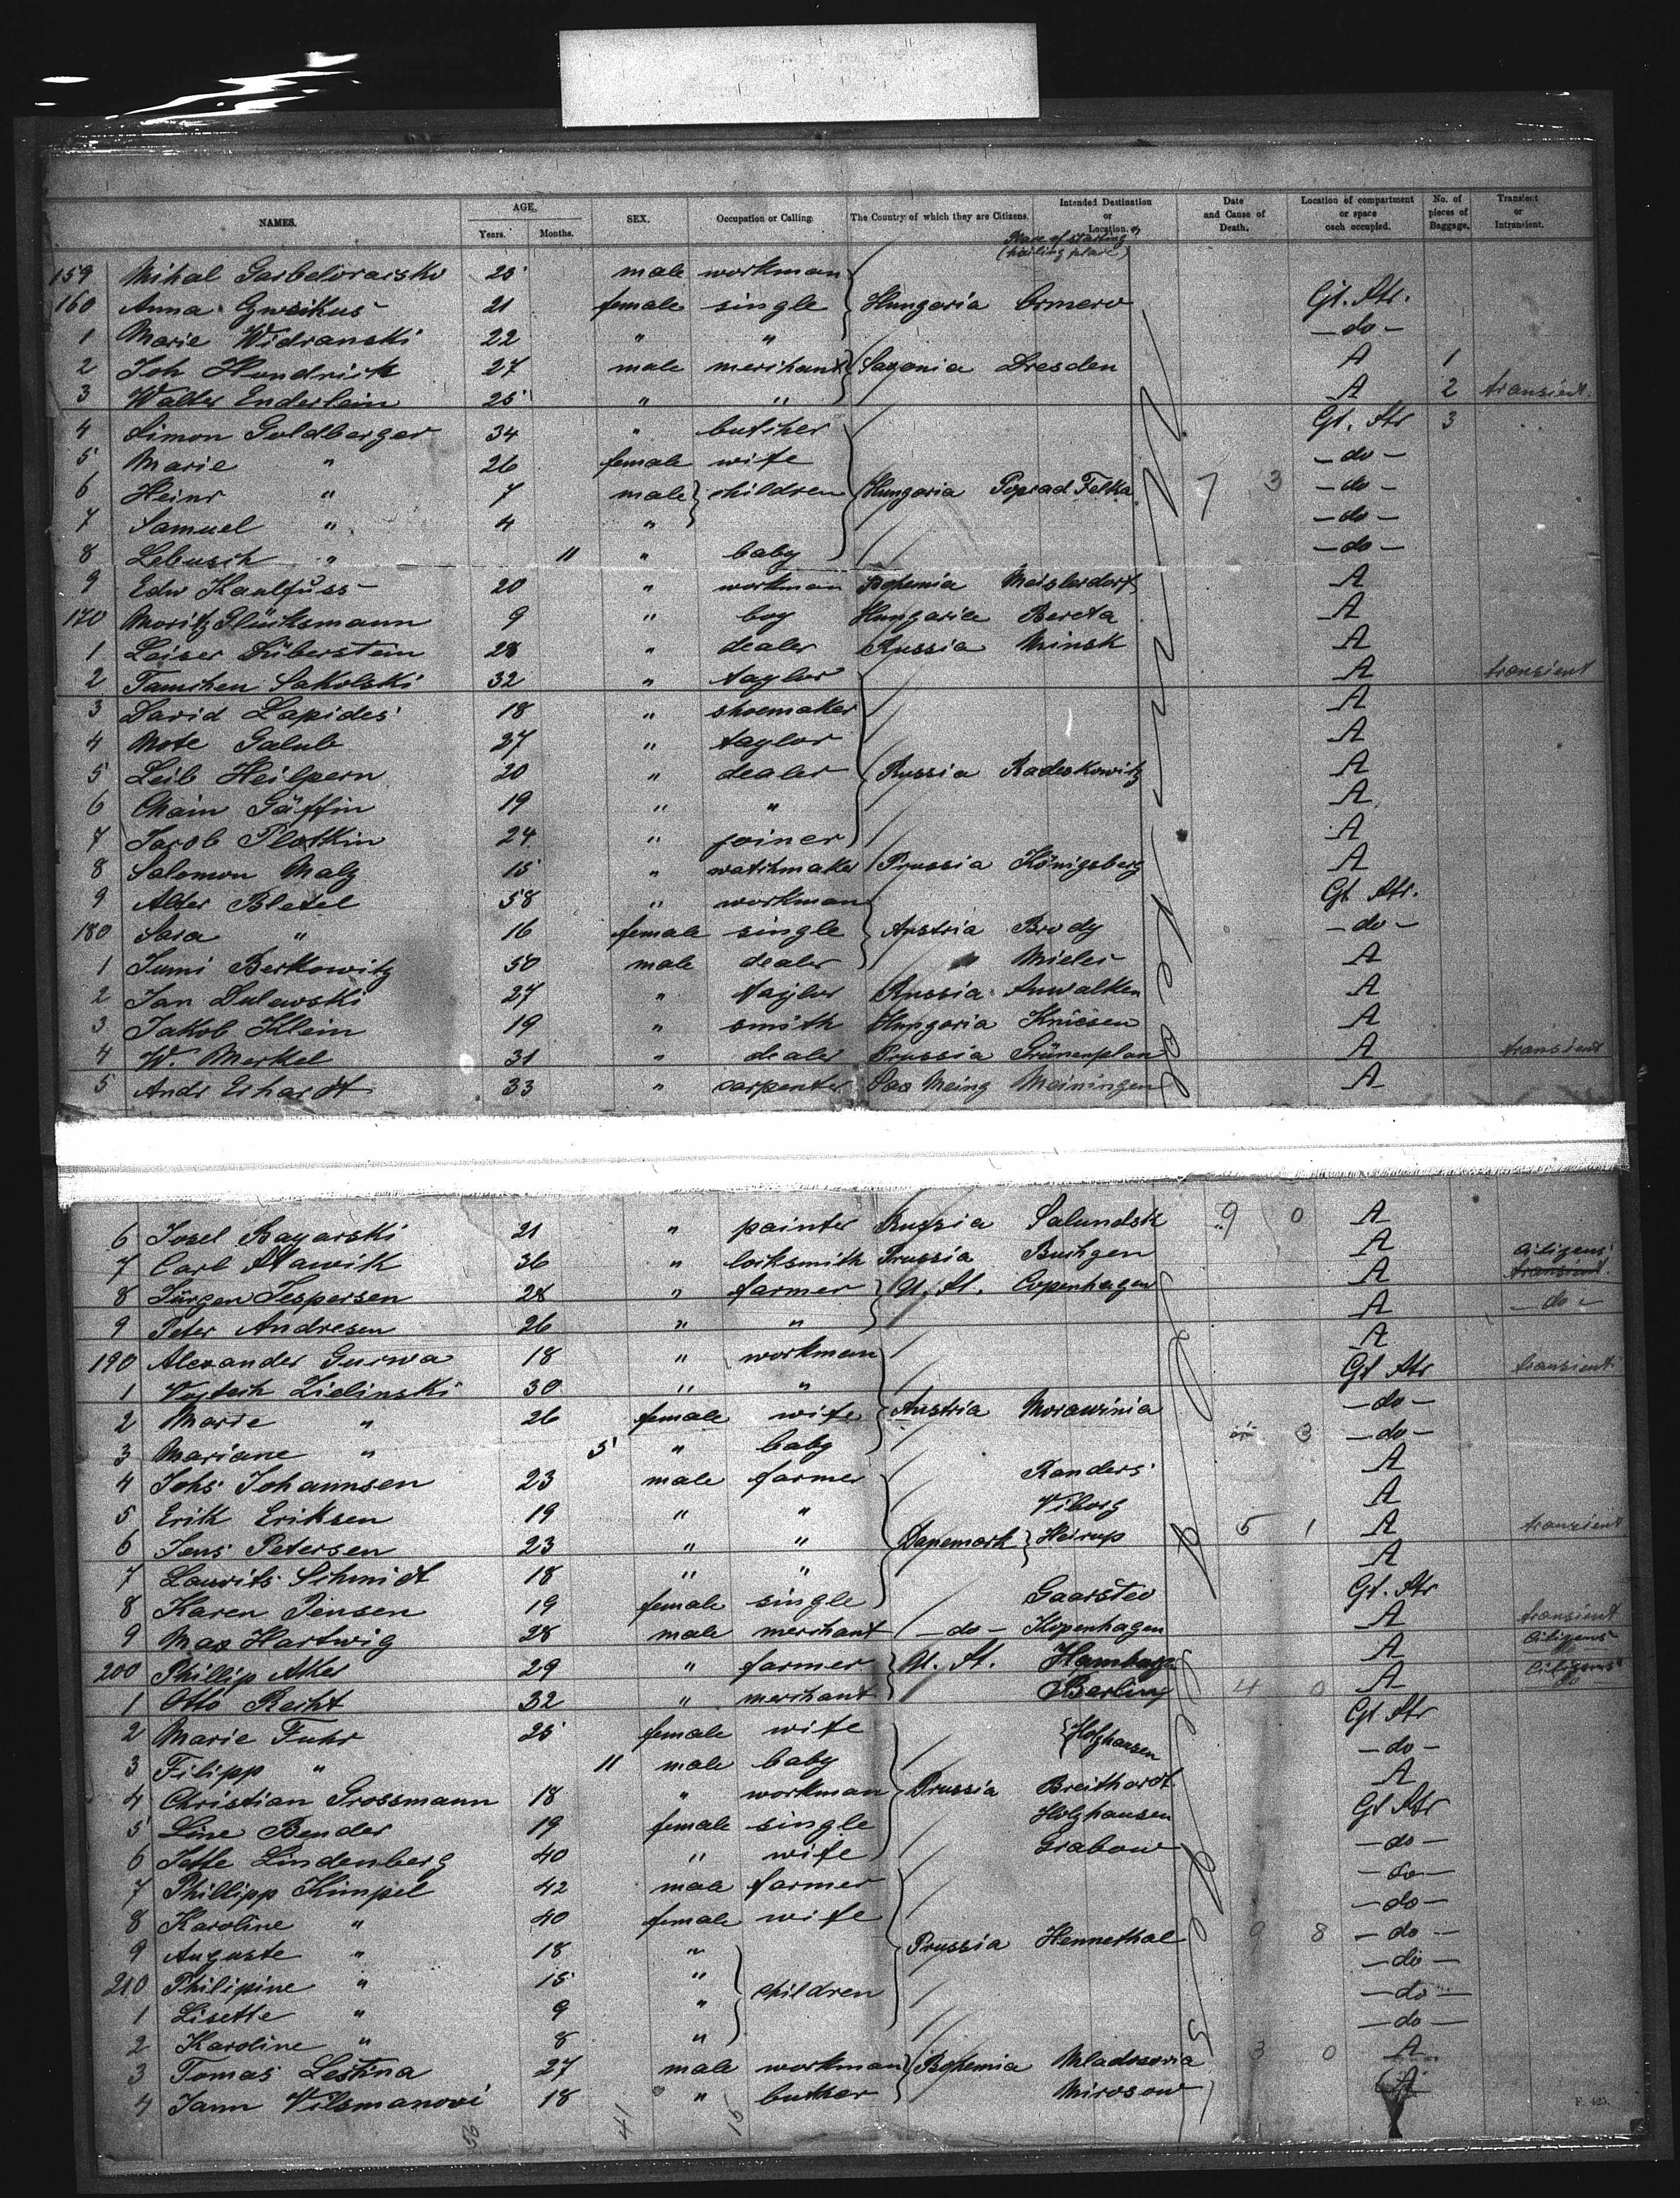 NAMES. AGE. Years. Months. SEX. Occupation or Calling. The Country of which they are Citizens. Intended Destination or Location. or Place of starting (hailing place) Date and Cause of Death. Location of compartment or space each occupied. No. of pieces of Baggage. Transient or Intransient.
159 Mihal 25 male workman
160 Anna 21 female single Hungaria Ormero Gt. Str.
1 Marie Widranski 22 " " - do -
2 Joh Hendrick 27 male merchant Saxonia Dresden A 1
3 Walter Enderlein 25 " " A 2 transient
4 Simon Goldberger 34 " butcher Gt. Str 3
5 Marie " 26 female wife - do -
6 Heinr " 7 male children Hungaria Poprad Felka 7 3 - do -
7 Samuel " 4 " - do -
8 Lebusch " 11 " baby - do -
9 Edw Kaulfuss 20 " workman Bohemia Meislersdorf A
170 Moritz Glücksmann 9 " boy Hungaria Bereta A
1 Leiser Silberstein 28 " dealer Russia Minsk A
2 Tamchen Sakolski 32 " taylor A transient
3 David Lapides 18 " shoemaker A
4 Mote Galub 27 " taylor A
5 Leib Heilpern 20 " dealer Russia Radeskowitz A
6 Chain Gäffin 19 " " A
7 Jacob Plotkin 24 " joiner A
8 Salomon Malz 15 " watchmaker Prussia Königsberg A
9 Alter Bletel 58 " workman Gt Str.
180 Sara " 16 female single Austria Brody - do -
1 Sumi Berkowitz 50 male dealer " Mielec A
2 Jan Dulawski 27 " taylor Russia Suwalken A
3 Jakob Klein 19 " smith Hungaria Kniesen A
4 W. Merkel 31 " dealer Prussia Grünenplan A transient
5 Andr Erhardt 33 " carpenter Sax Meing Meiningen A
6 Josel Ragarski 21 " painter Russia Salundsk 9 0 A
7 Carl Stawik 36 " locksmith Prussia Buchgen A citizens
8 Jürgen Jespersen 28 " farmer U. St. Copenhagen A transient
9 Peter Andresen 26 " " A - do -
190 Alexander Gurwa 18 " workman A
1 Vojtech Zielinski 30 " " Gt Str transient
2 Marie " 26 female wife Austria Morawinia - do -
3 Mariane " 5 " baby 3 - do -
4 Johs Johannsen 23 male farmer Randers A
5 Erik Eriksen 19 " " Viborg A
6 Jens Petersen 23 " " Danemark Heirup 5 1 A transient
7 Laurits Schmidt 18 " " A
8 Karen Jensen 19 female single Gaarsted Gt. Str
9 Max Hartwig 28 male merchant - do - Kopenhagen A transient
200 Phillip Aker 29 " farmer U. St. Hamburg A citizens
1 Otto Recht 32 " merchant Berling 4 0 A citizens do
2 Marie Fuhr 25 female wife Holzhausen Gt Str
3 Filipp " 11 male baby - do -
4 Christian Grossmann 18 " workman Prussia Breithardt A
5 Line Bender 19 female single Holzhausen Gt Str
6 Jette Lindenberg 40 " wife Grabow - do -
7 Phillipp Kimpel 42 male farmer - do -
8 Karoline " 40 female wife - do -
9 Auguste " 18 " Prussia Hennethal 9 8 - do -
210 Philipine " 15 " children - do -
1 Lisette " 9 " - do -
2 Karoline " 8 " - do -
3 Tomas Lestina 27 male workman Bohemia Mladosovia 3 0 A
4 Jann Vilsmanovi 18 " butcher Mirosow A
56 41 15
F. 425.